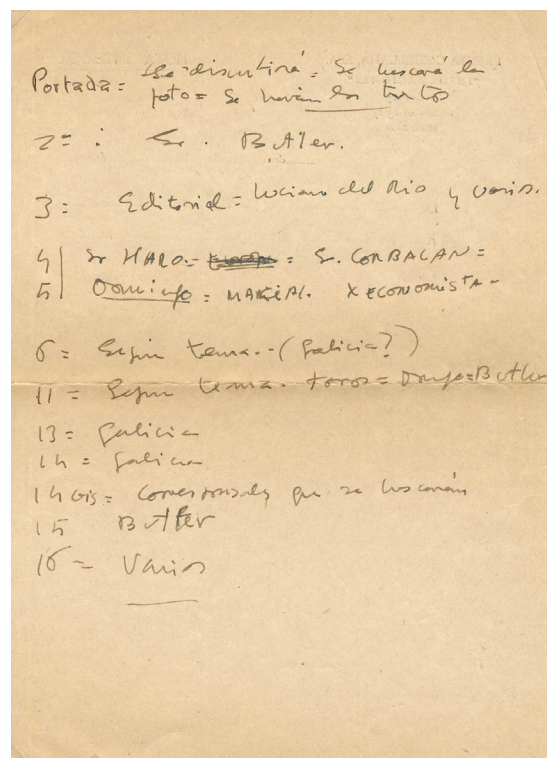 Portada = Se discutirá = Se buscará la
foto = Se harán los textos
2= : Sr. Butler.
3 = Editorial = Luciano del Rio y varios.
4 Sr HARO = = Sr. CORBALAN =
5 Domingo = MARCIAL. X ECONOMISTA -
6 = Según tema.- (Galicia?)
11 = Según tema. toros = =Butler
13 = Galicia
14 = Galicia
14 bis = Corresponsales que se buscarán
15 Butler
16 = Varios